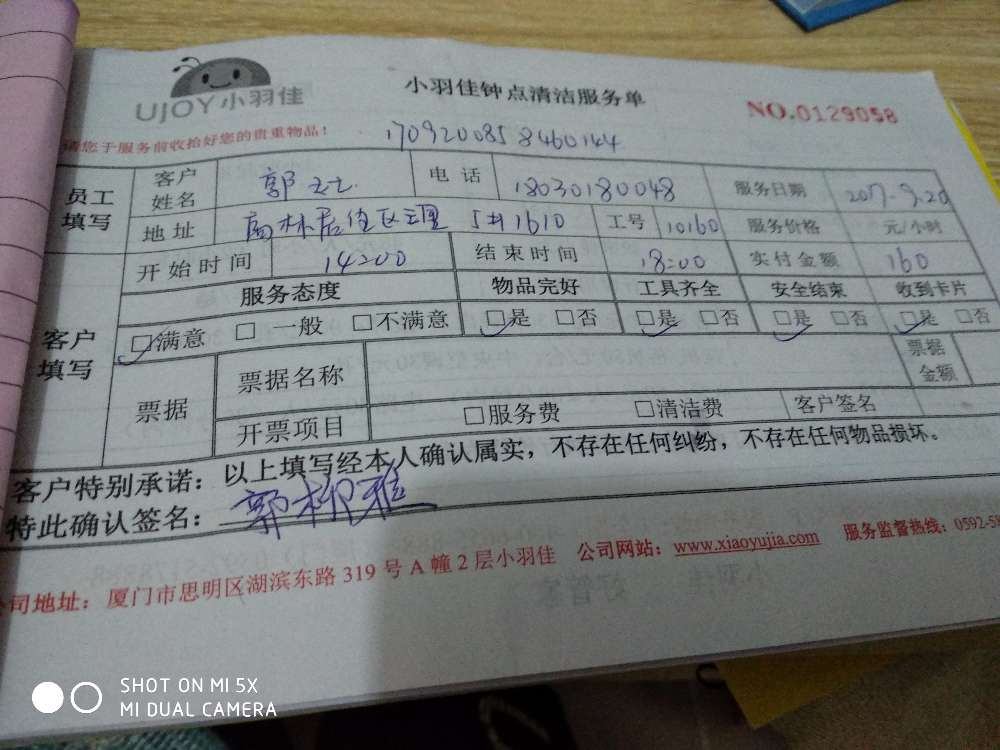 UJOY小羽佳
小羽佳钟点清洁服务单
NO.0129058
请您于服务前收拾好您的贵重物品！
1709200858460144
员工填写 客户姓名 郭 电话 18030180048 服务日期 2017.9.20
地址 高林居住区三里 1610 工号 10160 服务价格 元/小时
开始时间 14:00 结束时间 18:00 实付金额 160
客户填写 服务态度 物品完好 工具齐全 安全结束 收到卡片
□满意 □一般 □不满意 □是 □否 □是 □否 □是 □否 □是 □否
票据 票据名称 票据金额
开票项目 □服务费 □清洁费 客户签名
客户特别承诺：以上填写经本人确认属实，不存在任何纠纷，不存在任何物品损坏。
特此确认签名：郭柳雅
公司地址：厦门市思明区湖滨东路319号A幢2层小羽佳 公司网站：www.xiaoyujia.com 服务监督热线：0592-5
SHOT ON MI 5X
MI DUAL CAMERA